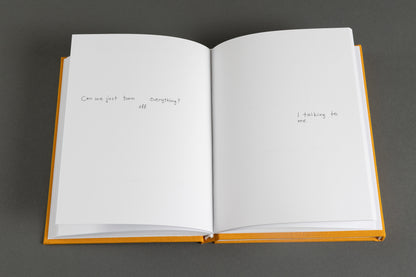 Can we just turn everything?
off
I talking to
me